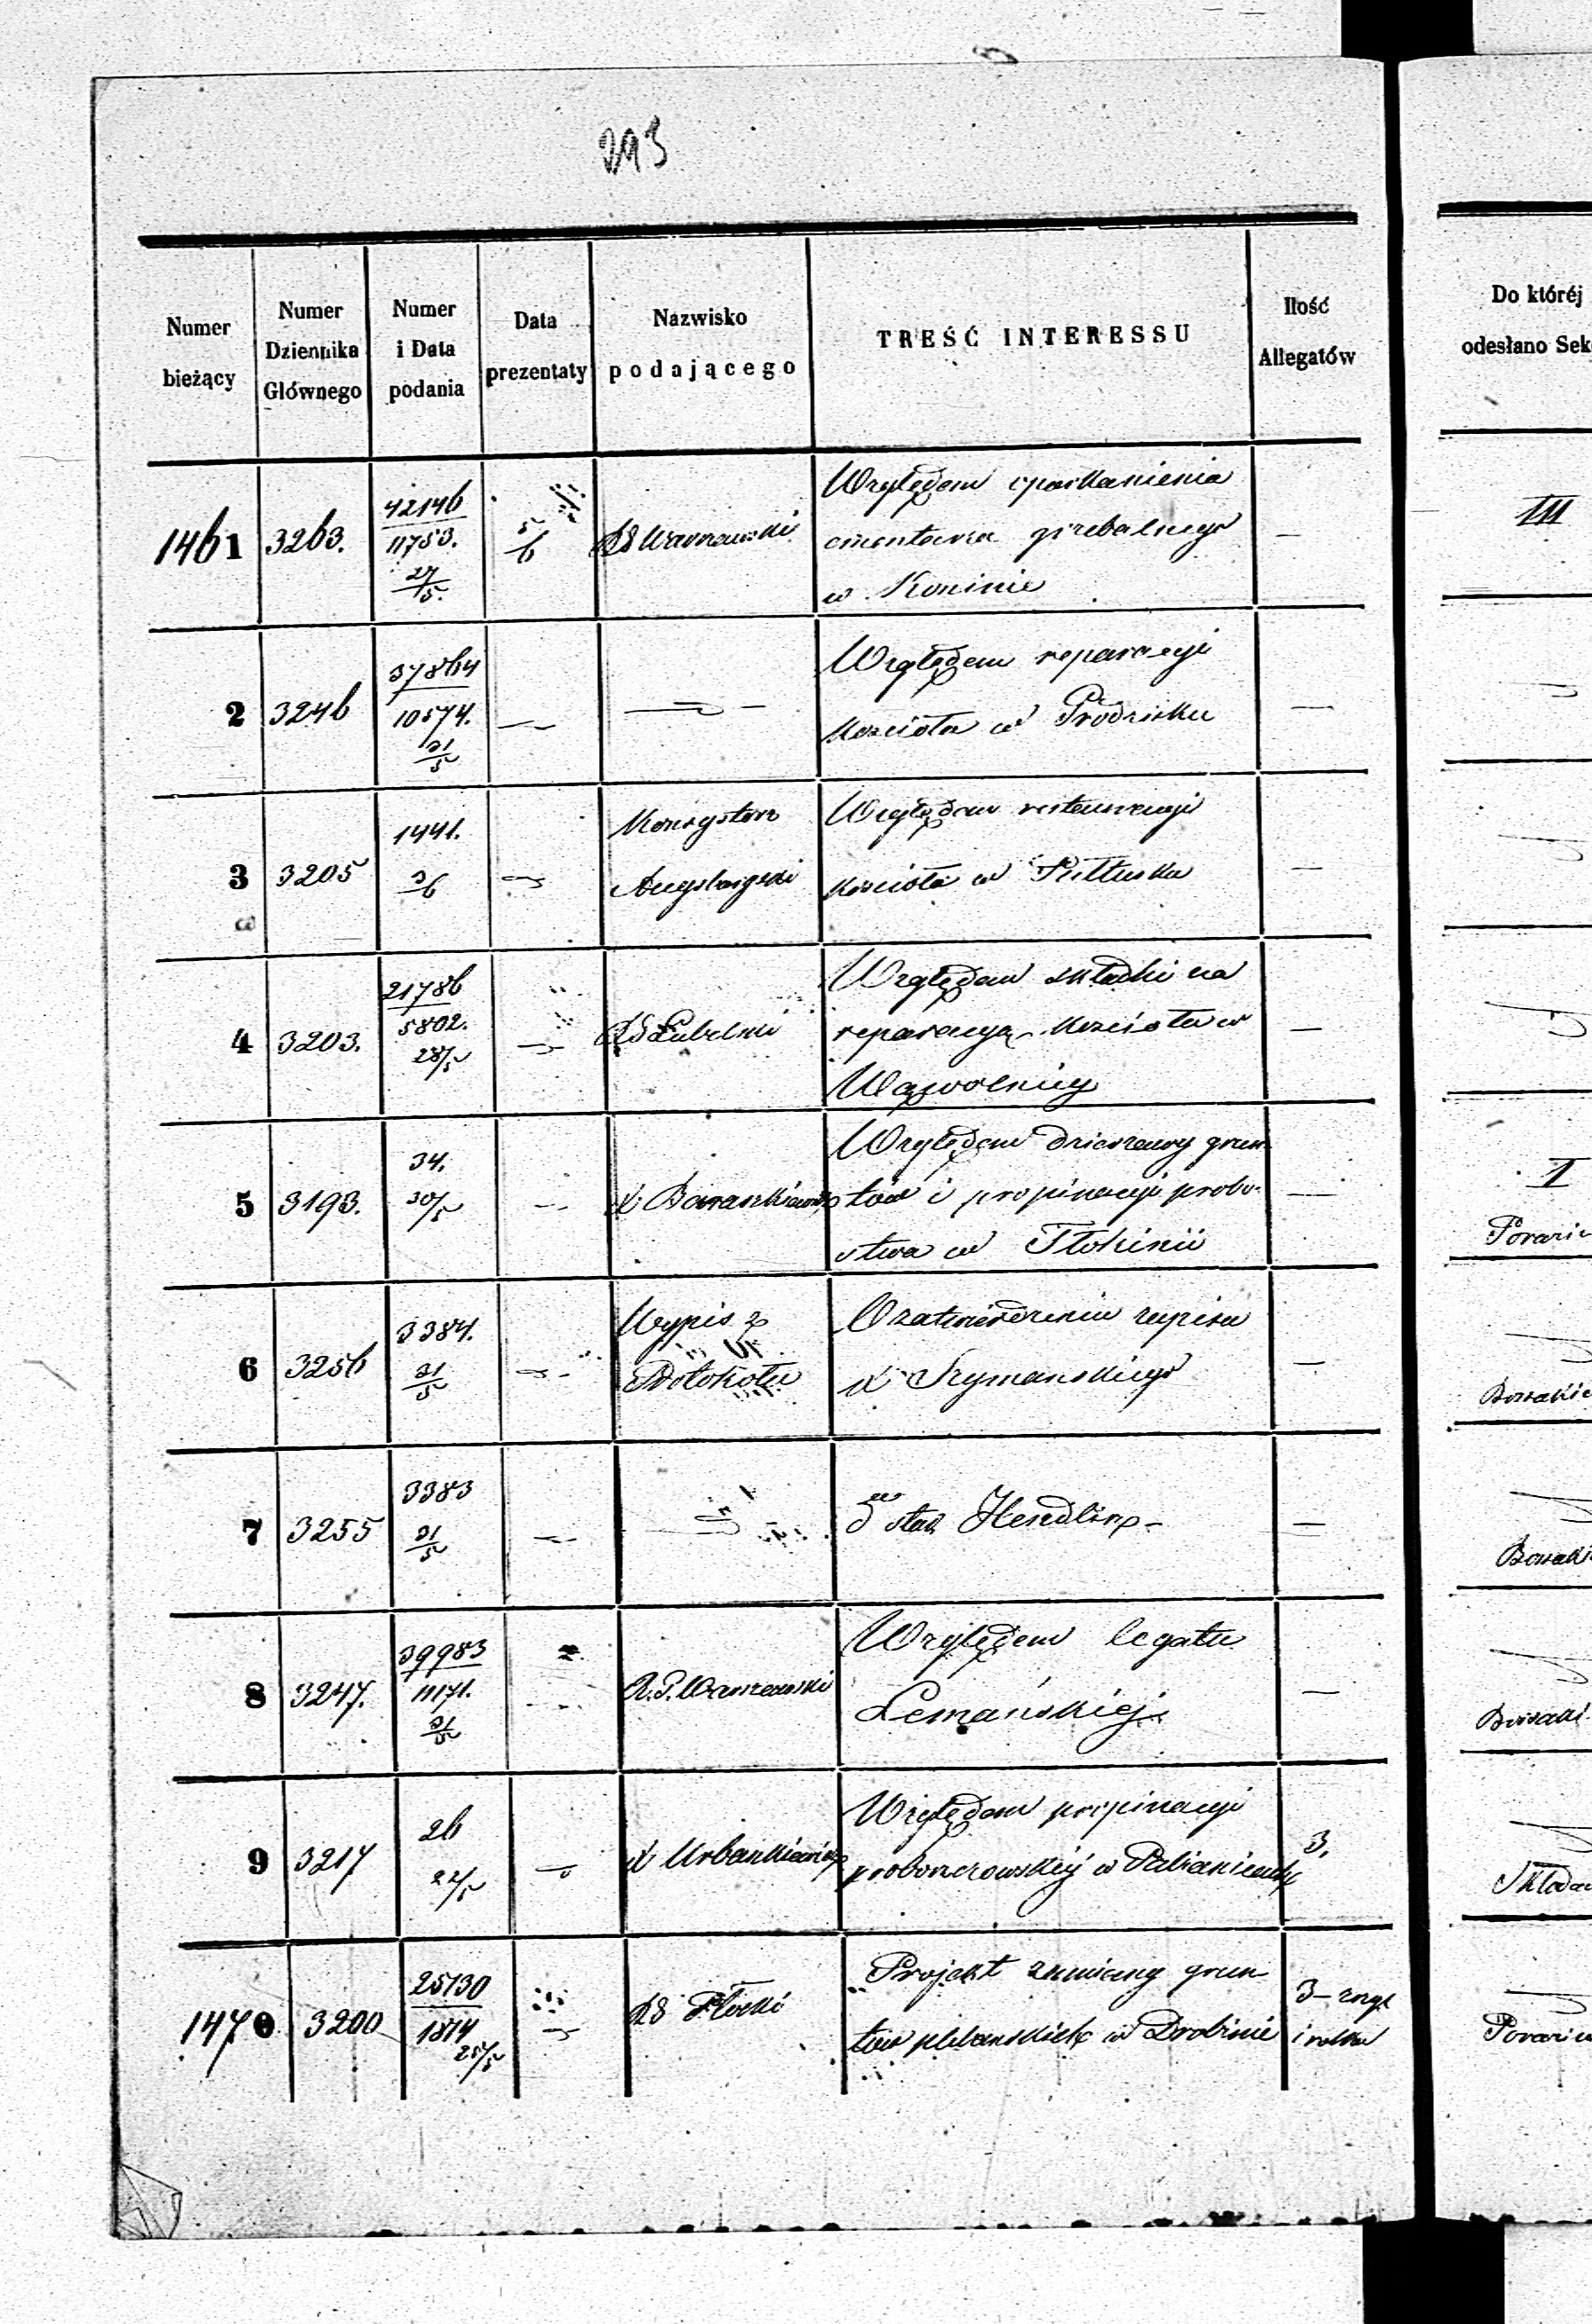 293
Numer bieżący
Numer Dziennika Głównego
Numer i Data podania
Data prezentaty
Nazwisko podającego
TREŚĆ INTERESSU
Ilość Allegatów
Do któréj
odesłano Sek
1461 3263. 42146 11753. 27/5. 5/6 RG Warszawski
Względem oparkanienia
cmentarza grzebalnego
w Koninie
—
III
2 3246 37864 10574. 31/5 — —
Względem reparacyi
kościoła w
—
3 3205 1441. 3/6 — Konsystorz
Augsburgski
Względem restauracyi
kościoła w Pułtusku
—
4 3203. 21786 5802. 28/5 — RG Lubelski
Względem składki na
reparacyą kościoła w
Wąwolnicy
—
5 3193. 34. 30/5 — X Baraszkiewicz
Względem dzierzawy grun
tów i propinacyi probo-
stwa w Tłokinii
—
I
6 3256 3384. 31/5 — Wypis z
Protokołu
O zatwierdzenie zapisu
X Szymanskiego
—
7 3255 3383 31/5 —
—
8 3247. 39983 11171. 31/5 — R.G. Warszawski
Względem legatu
Lemańskiej
—
9 3217 26 22/5 — X Urbankiewicz
Względem propinacyi
proboszczowskiej w Pabianicach
3.
1470 3200 25130 1874 25/5 — RG Płocki
Projekt zamiany grun
tów plebanskich w Drobinie
3